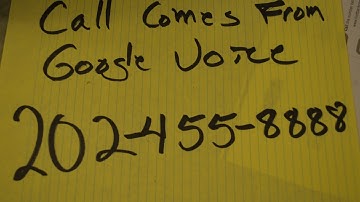 Call Comes From
Google Voice
202-455-8888